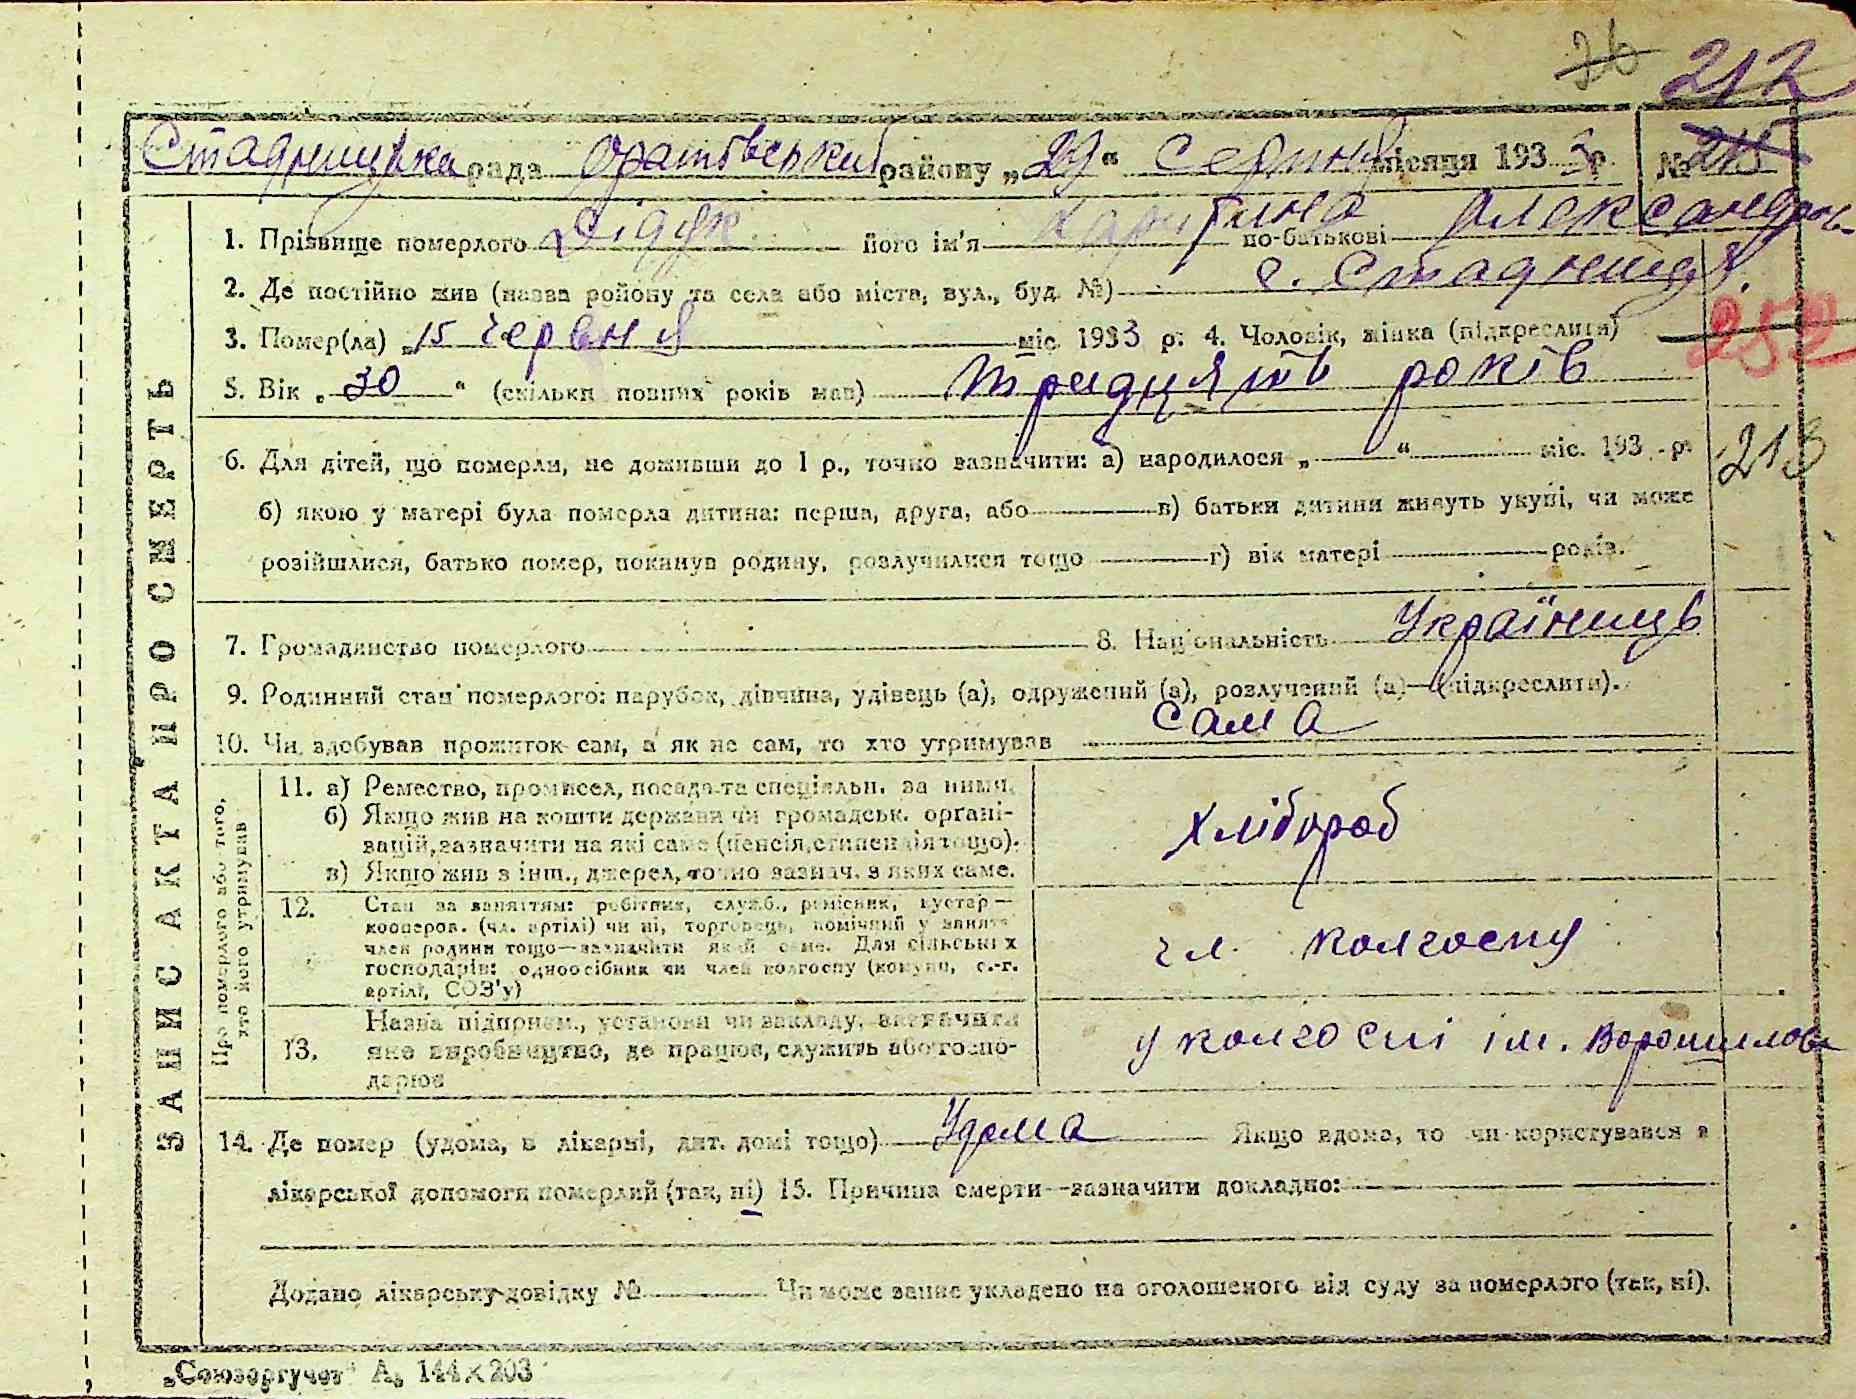 26 212
Стадницька рада Оратівський району „29“ серпня місяця 1933 р. № 213
1. Прізвище померлого Дідук його ім'я Харитина по-батькові Александров.
2. Де постійно жив (назва району та села або міста, вул., буд. №) с. Стадниця.
3. Помер(ла) „15 червня міс. 1933 р. 4. Чоловік, жінка (підкреслити) 252
5. Вік „30“ (скільки повних років мав) тридцять років
6. Для дітей, що померли, не доживши до 1 р., точно вазначити: а) народилося „ “ міс. 193 р. 213
б) якою у матері була померла дитина: перша, друга, або в) батьки дитини живуть укупі, чи може
розійшлися, батько помер, покинув родину, розлучилися тощо г) вік матері років.
7. Громадянство померлого 8. Національність Українець
9. Родинний стан померлого: парубок, дівчина, удівець (а), одружений (а), розлучений (а)—(підкреслити).
10. Чи здобував прожиток сам, а як не сам, то хто утримував сама
ЗАПИС АКТА ПРО СМЕРТЬ
Про померлого або того, хто його утримував
11. а) Ремество, промисел, посада та спеціяльн. за ними.
б) Якщо жив на кошти держави чи громадськ. органі-
зацій, зазначити на які саме (пенсія, стипендія тощо).
в) Якщо жив з інш., джерел, точно зазнач. з яких саме.
хлібороб
12. Стан за заняттям: робітник, служб., ремісник, кустар—
кооперов. (чл. артілі) чи ні, торговець, помічний у занятт.
член родини тощо—зазначити який саме. Для сільських
господарів: одноосібник чи член колгоспу (комуни, с.-г.
артілі, СОЗ'у)
чл. колгоспу
13. Назва підприєм., установи чи закладу, зазначити
яке виробництво, де працює, служить або госпо-
дарює
у колгоспі ім. Ворошилова
14. Де помер (удома, в лікарні, дит. домі тощо) Удома Якщо вдома, то чи користувався з
лікарської допомоги померлий (так, ні) 15. Причина смерти—зазначити докладно:
Додано лікарську довідку № Чи може запис укладено на оголошеного від суду за померлого (так, ні).
„Союзоргучет“ А₅ 144×203